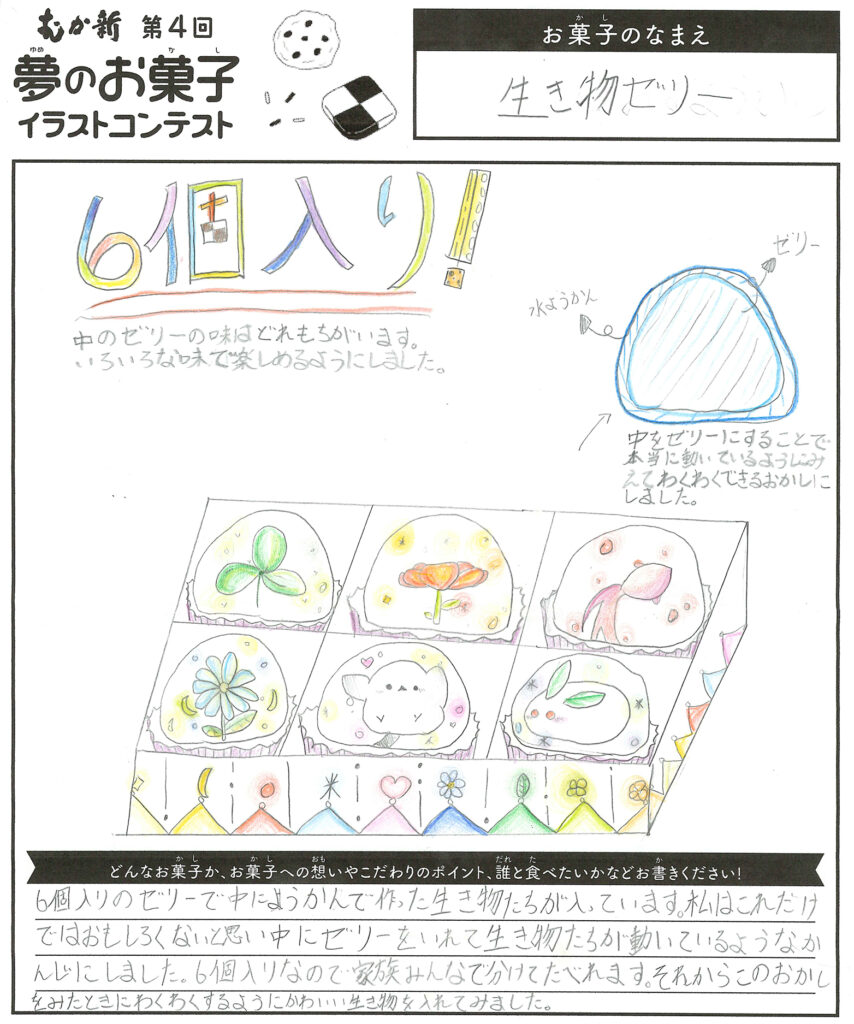 むか新 第4回
夢のお菓子
イラストコンテスト
お菓子のなまえ
生き物ゼリー
6個入り!
中のゼリーの味はどれもちがいます。
いろいろな味で楽しめるようにしました。
ゼリー
水ようかん
中をゼリーにすることで
本当に動いているようにみ
えてわくわくできるおかしに
しました。
どんなお菓子か、お菓子への想いやこだわりのポイント、誰と食べたいかなどお書きください!
6個入りのゼリーで中にようかんで作った生き物たちが入っています。私はこれだけ
ではおもしろくないと思い中にゼリーをいれて生き物たちが動いているようなか
んじにしました。6個入りなので家族みんなで分けてたべれます。それからこのおかし
をみたときにわくわくするようにかわいい生き物を入れてみました。